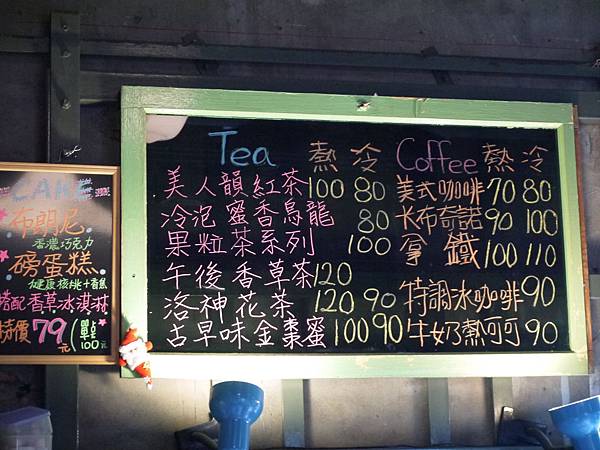 CAKE
布朗尼
香濃巧克力
磅蛋糕
健康核桃+香蕉
搭配香草冰淇淋
特價79元(單點100元
Tea 熱 冷
美人韻紅茶 100 80
冷泡蜜香烏龍 80
果粒茶系列 100
午後香草茶 120
洛神花茶 120 90
古早味金棗蜜 100 90
Coffee 熱 冷
美式咖啡 70 80
卡布奇諾 90 100
拿鐵 100 110
特調冰咖啡 90
牛奶熱可可 90